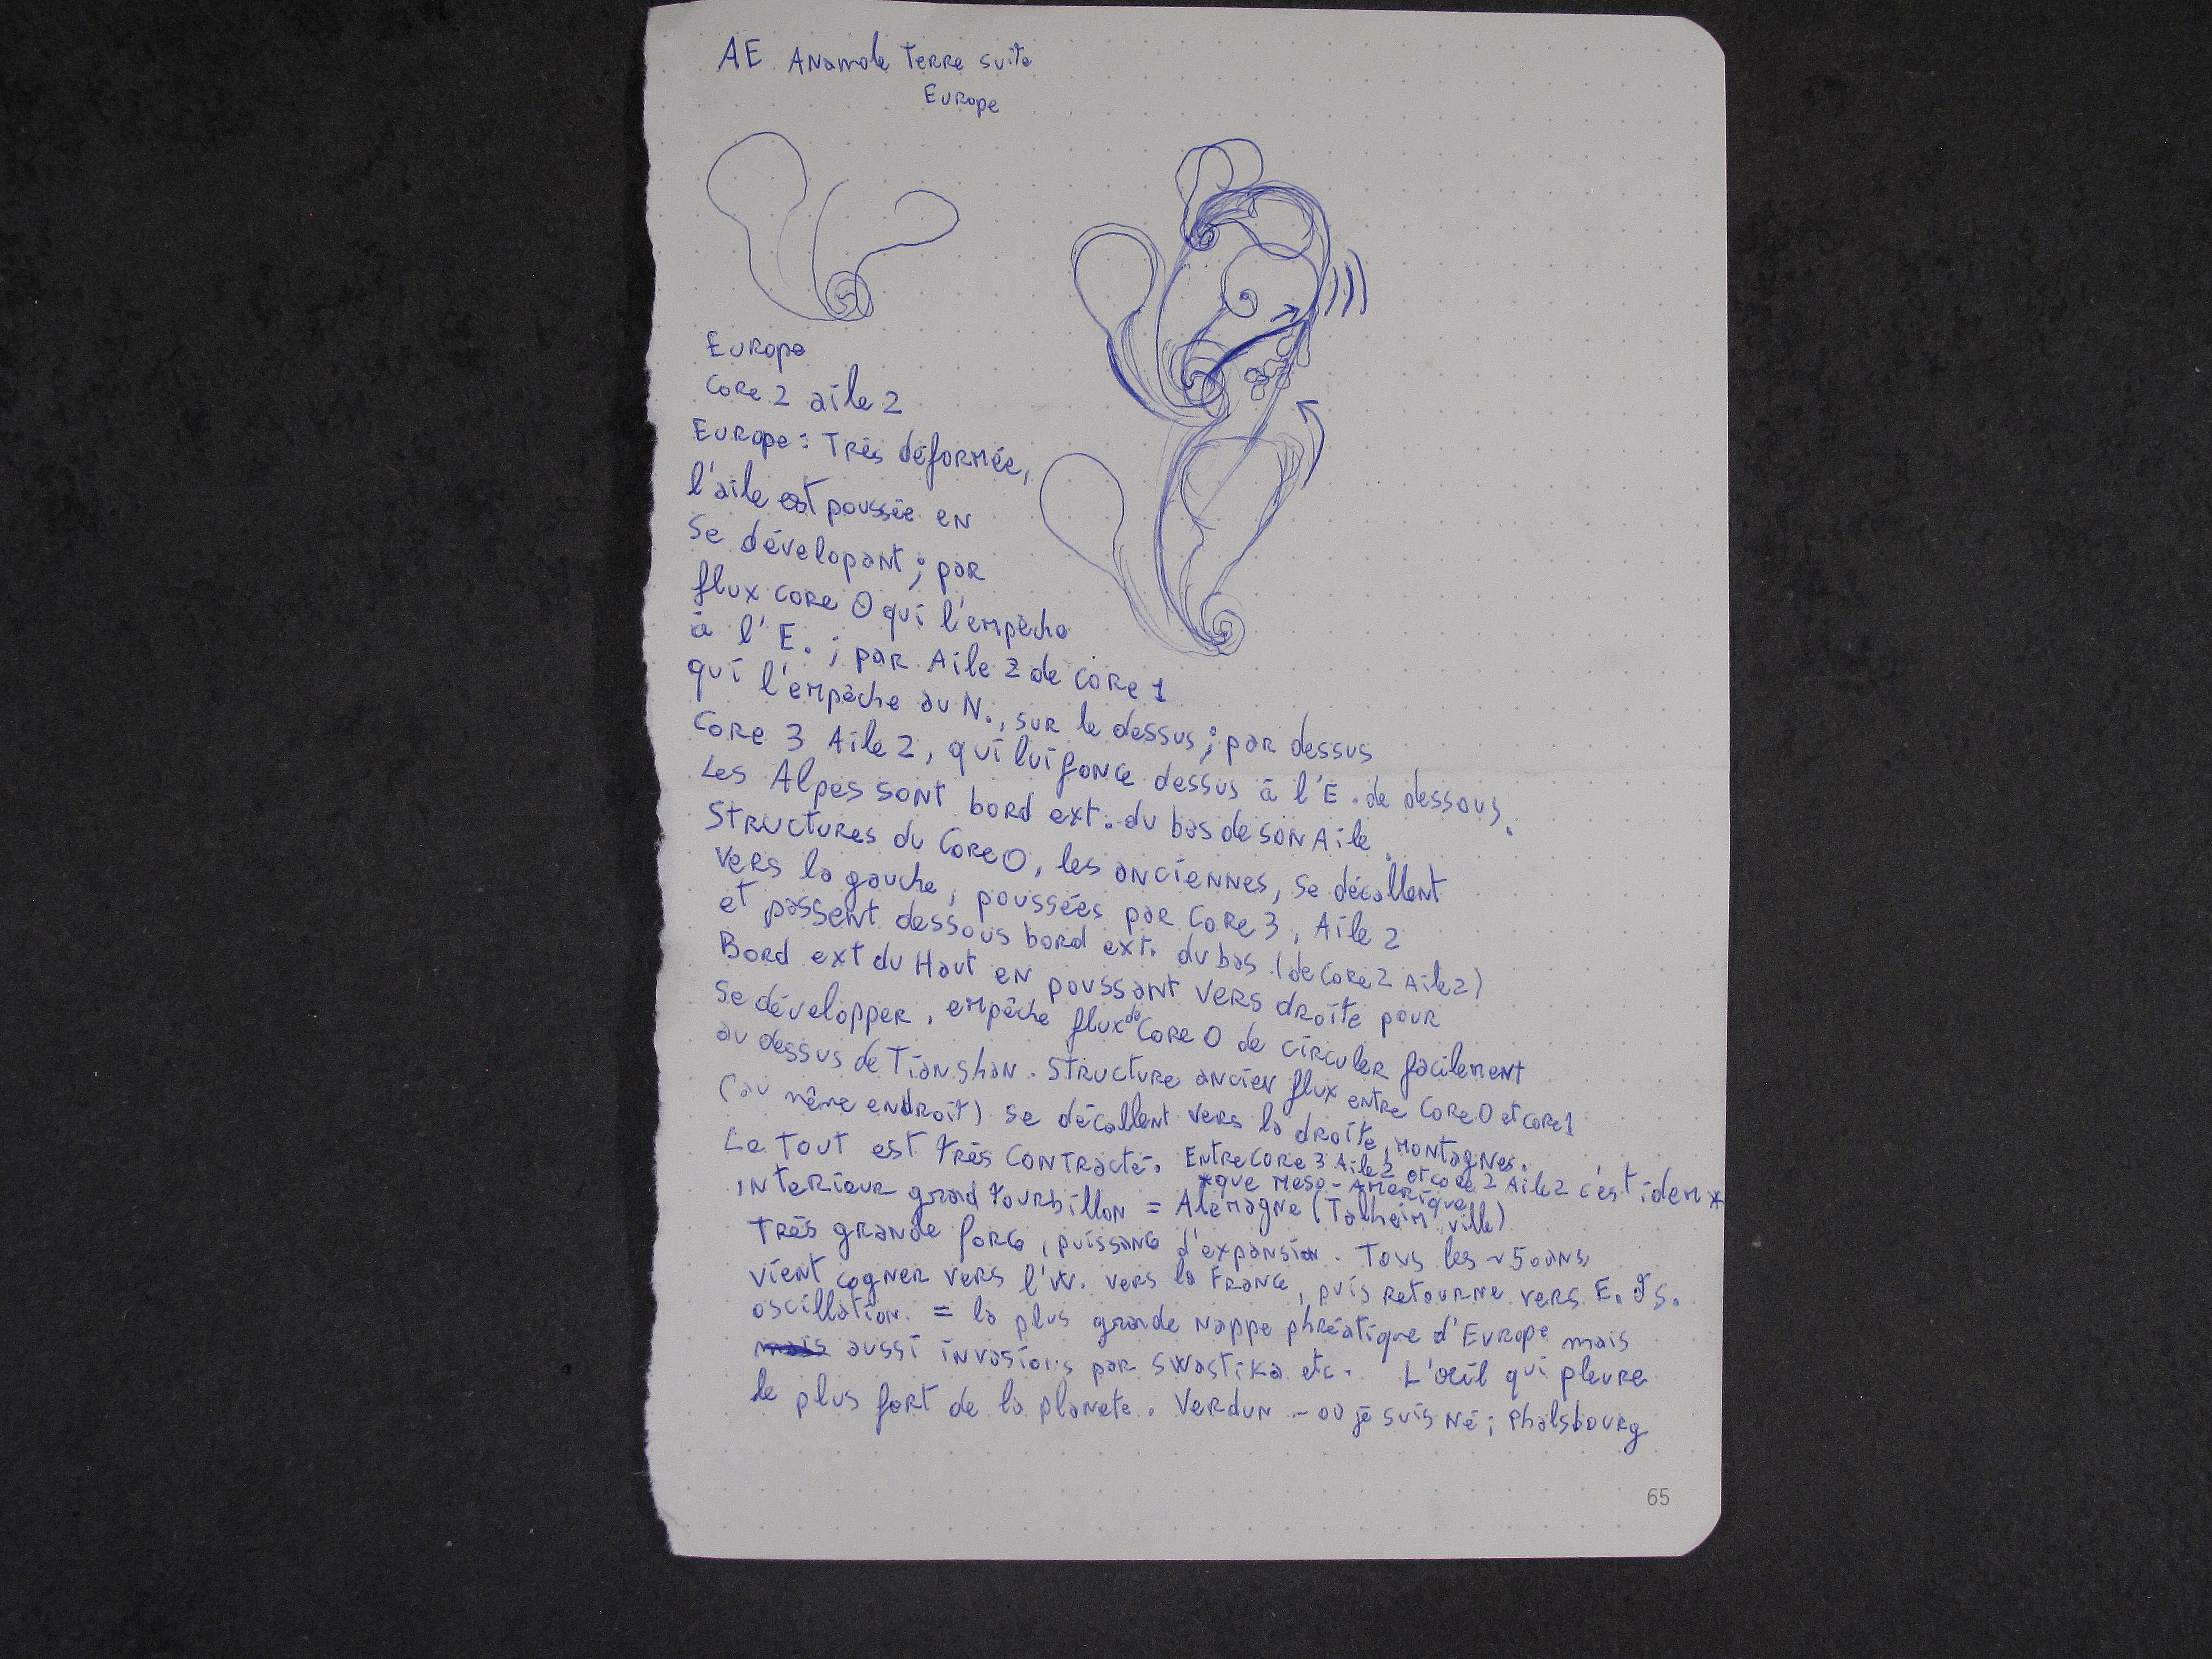 AE Anamole Terre suite
Europe
Europe
Core 2 aile 2
Europe : Très déformée,
l'aile est poussée en
se dévelopant ; par
flux core 0 qui l'empêche
à l'E. ; par Aile 2 de Core 1
qui l'empêche au N., sur le dessus ; par dessus
Core 3 Aile 2, qui lui fonce dessus à l'E. de dessous.
Les Alpes sont bord ext. du bas de son Aile.
Structures du Core 0, les anciennes, se décallent
vers la gauche, poussées par Core 3, Aile 2
et passent dessous bord ext. du bas (de Core 2 Aile 2)
Bord ext du Haut en poussant vers droite pour
se développer, empêche flux de Core 0 de circuler facilement
au dessus de Tianshan. Structure ancien flux entre Core 0 et Core 1
(au même endroit) se décallent vers la droite, montagnes.
Le tout est très contracté. Entre Core 3 Aile 2 et core 2 Aile 2 c'est idem *
*que Meso-Amérique
intérieur grand tourbillon = Alemagne (Talheim ville)
Très grande force, puissance d'expansion. Tous les ~50ans,
vient cogner vers l'W. vers la France, puis retourne vers E. &S.
oscillation. = la plus grande nappe phréatique d'Europe mais
mais aussi invasions par swastika etc. L'œil qui pleure
le plus fort de la planete. Verdun - où je suis né ; Phalsbourg
65